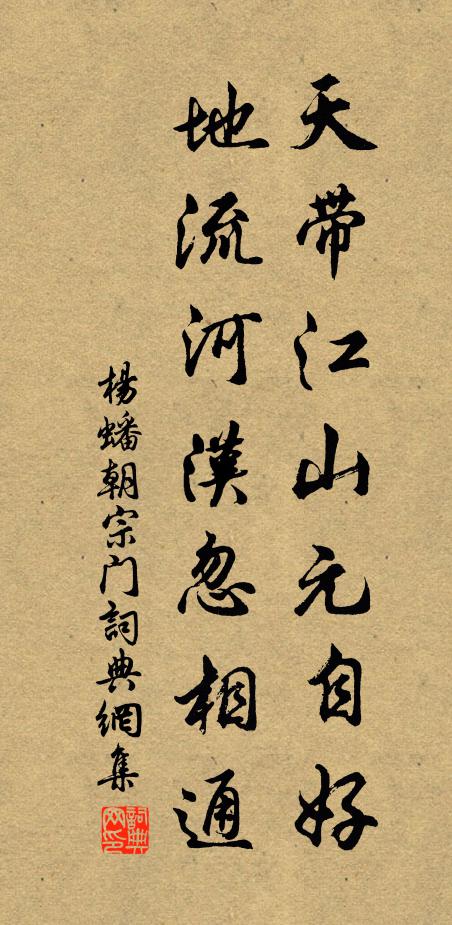 天帶江山元自好
地流河漢忽相通
楊蟠朝宗门詞典網集
詞典网印